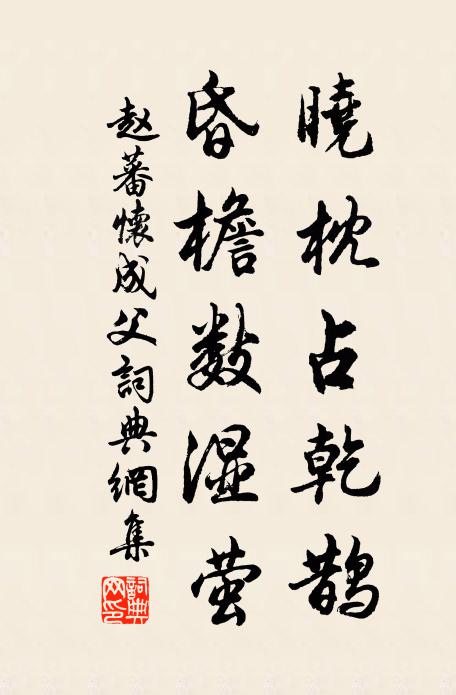 曉枕占乾鵲
昏檐數湿萤
赵蕃懷成父詞典網集
詞典网印